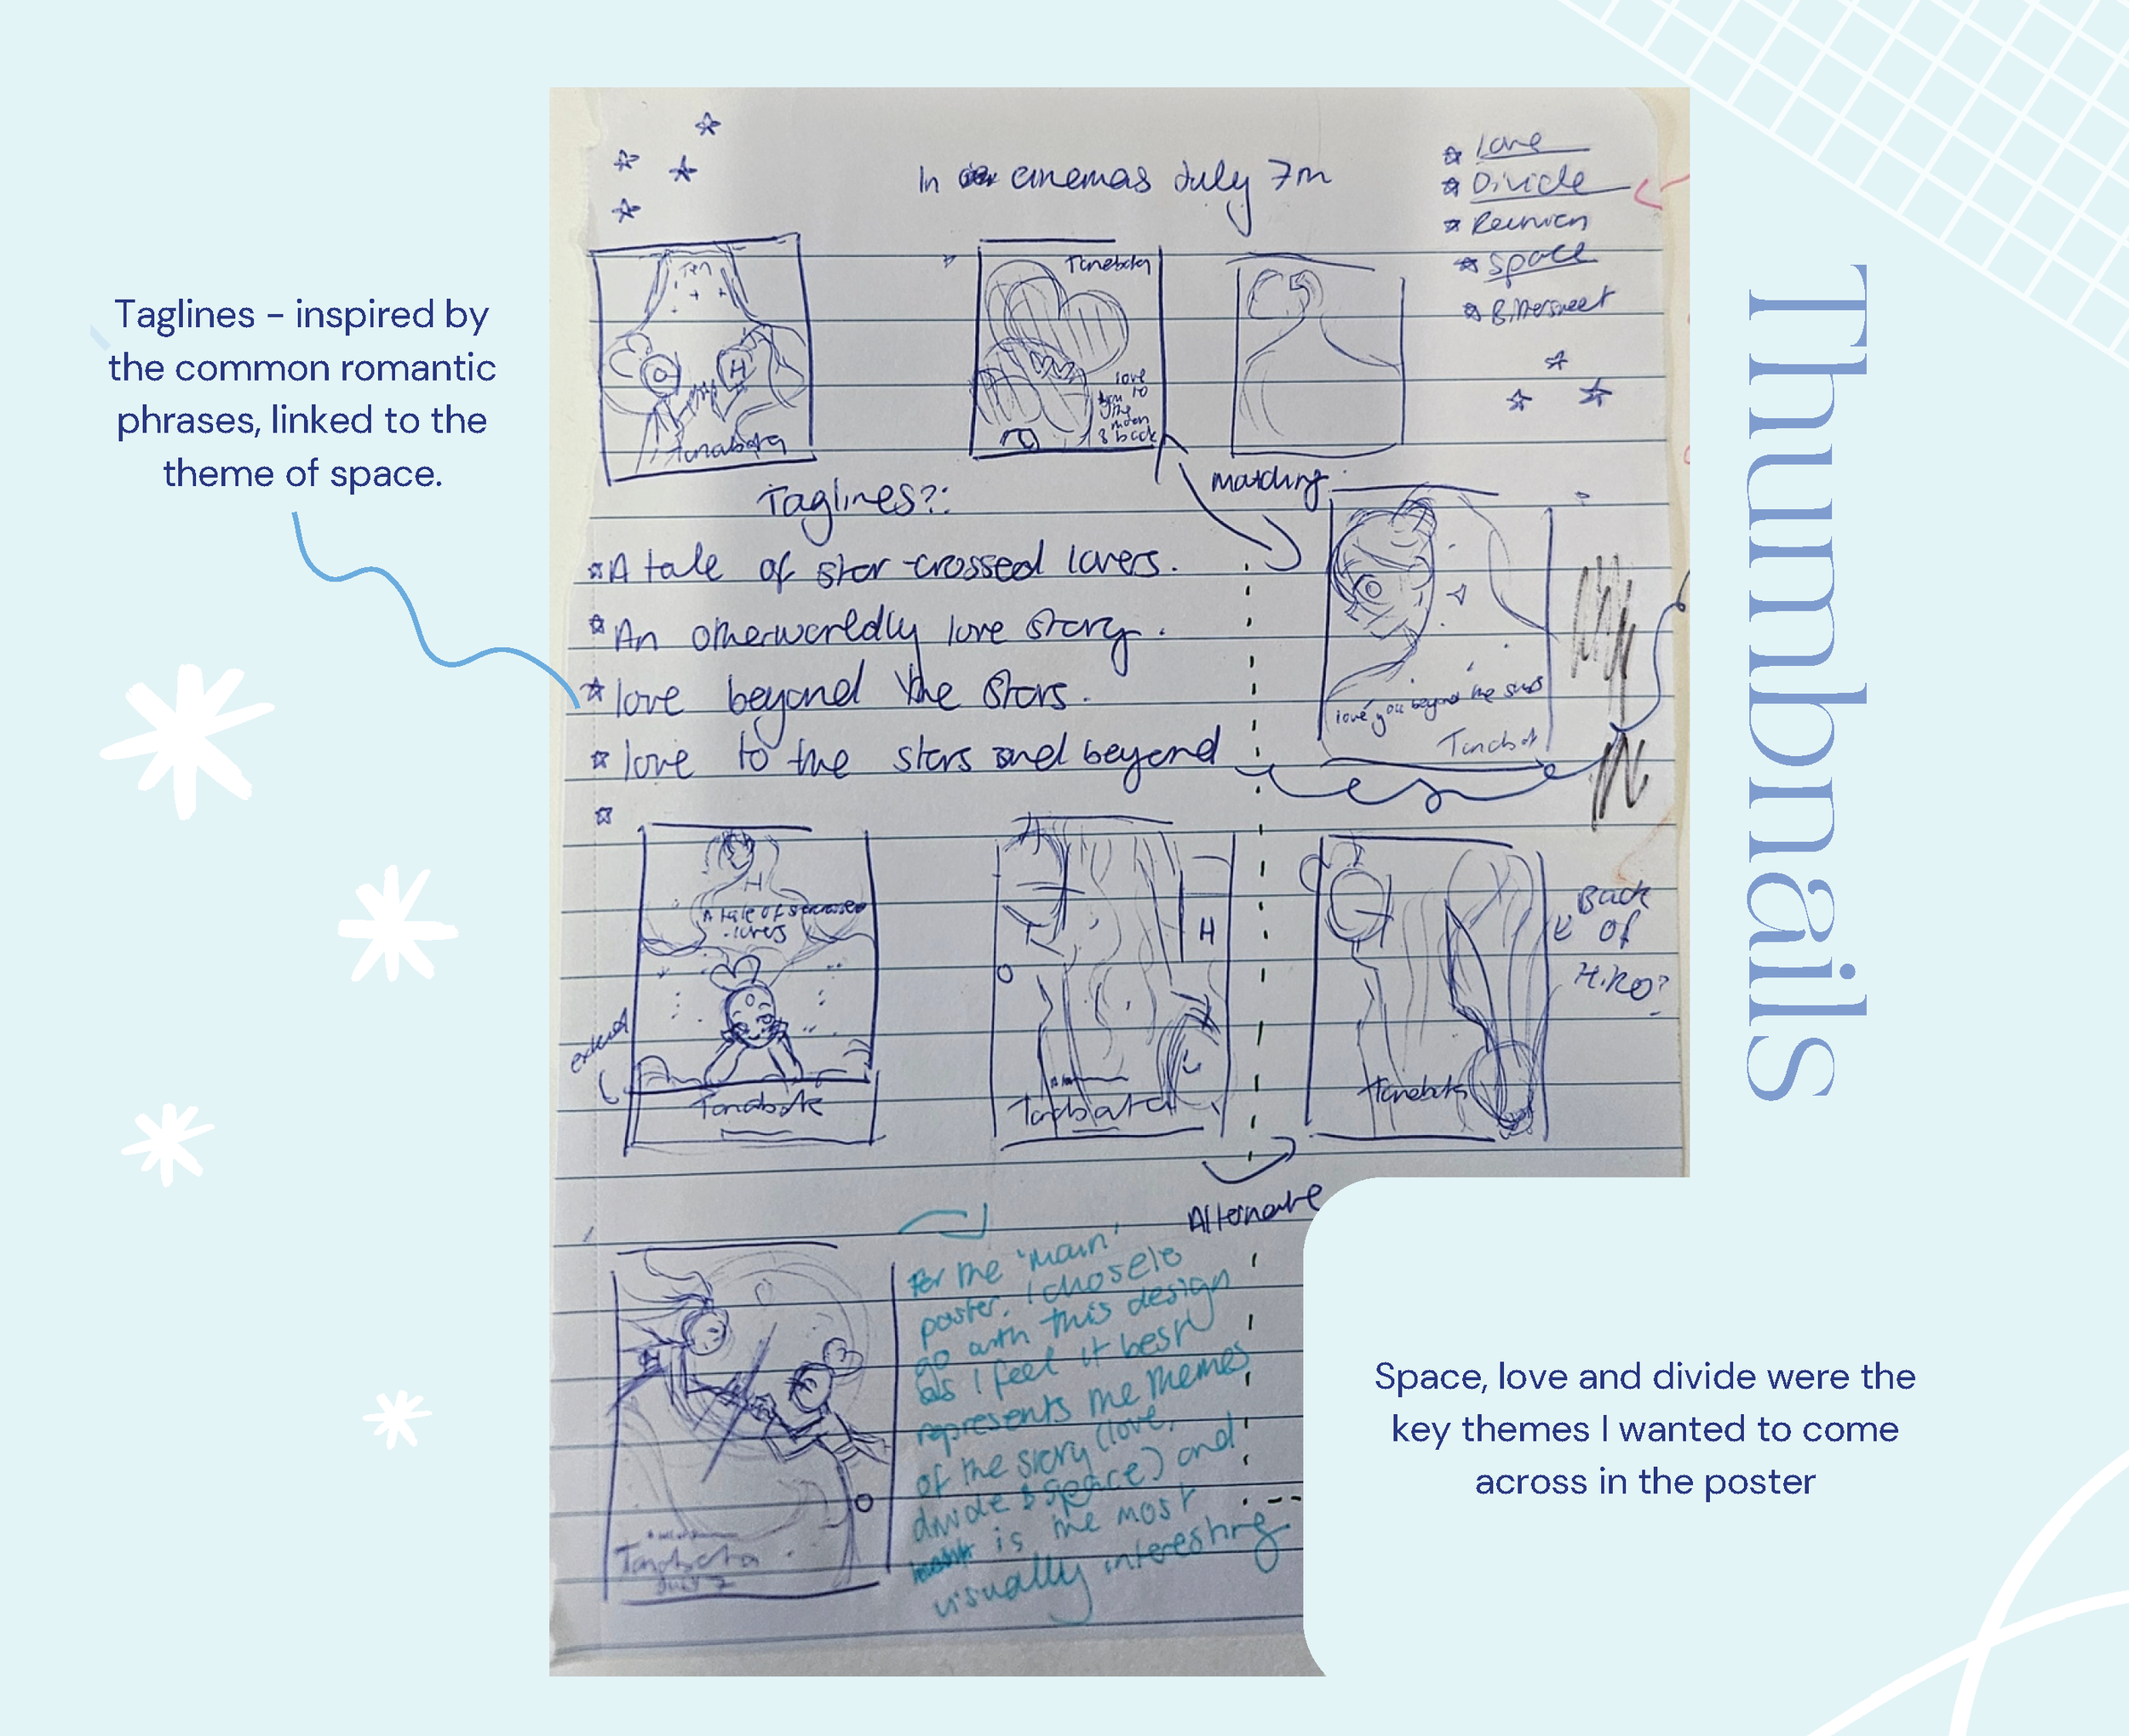 Thumbnails
Taglines - inspired by
the common romantic
phrases, linked to the
theme of space.
In cinemas July 7th
Love
Divide
Reunion
Space
Bittersweet
Ten
O
H
Tanabata
Tanabata
love
you to
the
moon
& back
matching
Taglines?:
A tale of star-crossed lovers.
An otherworldly love story.
love beyond the stars.
love to the stars and beyond
love you beyond the stars
Tanabat
H
A tale of starcrossed
-lovers
extend
Tanabata
H
O
Tanabata
Tanabata
Back
of
Hiko?
Alternate
For the 'main'
poster, I chose to
go with this design
as I feel it best
represents the themes
of the story (love,
divide & space) and
is the most
visually interesting
H
O
Tanabata
July 7
Space, love and divide were the
key themes I wanted to come
across in the poster